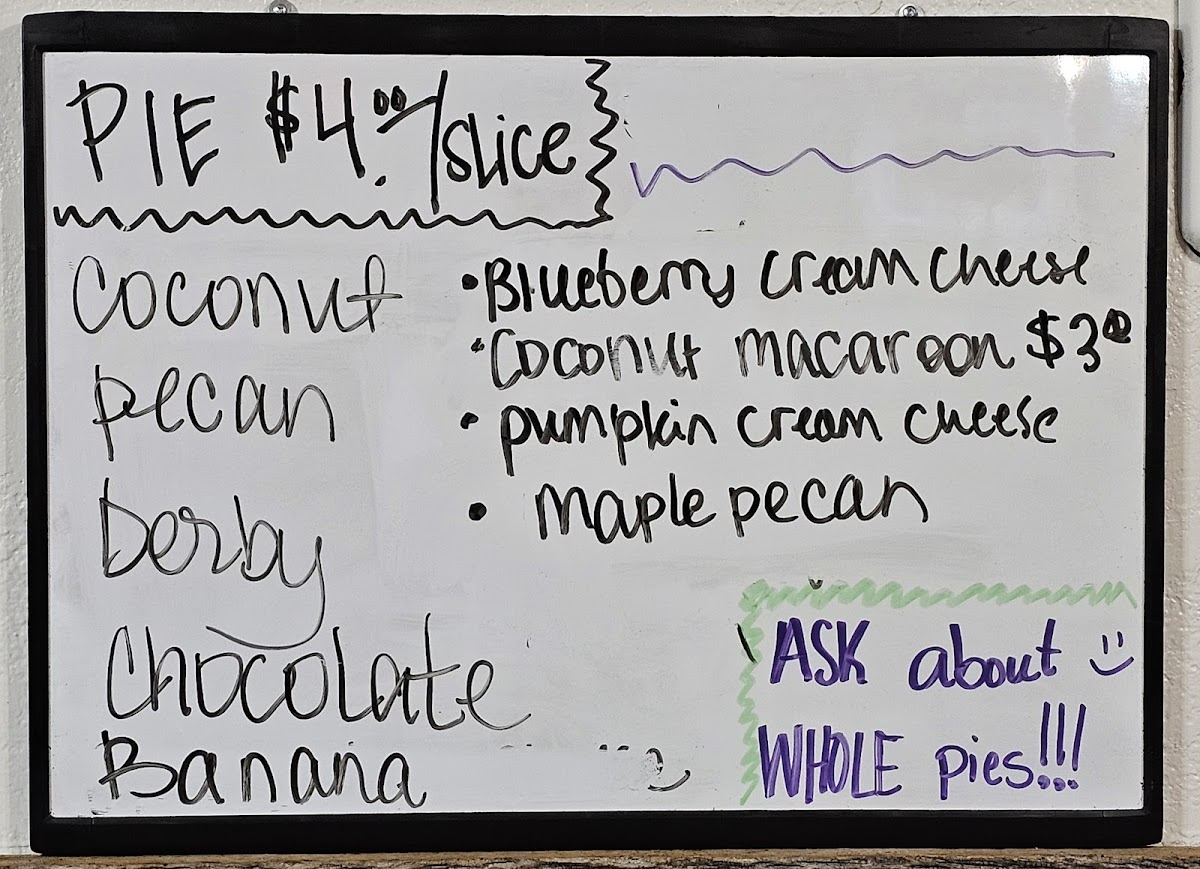 PIE $4.00/slice
Coconut
pecan
Derby
Chocolate
Banana
•Blueberry cream cheese
•Coconut macaroon $3.00
• pumpkin cream cheese
• maple pecan
ASK about
WHOLE pies!!!